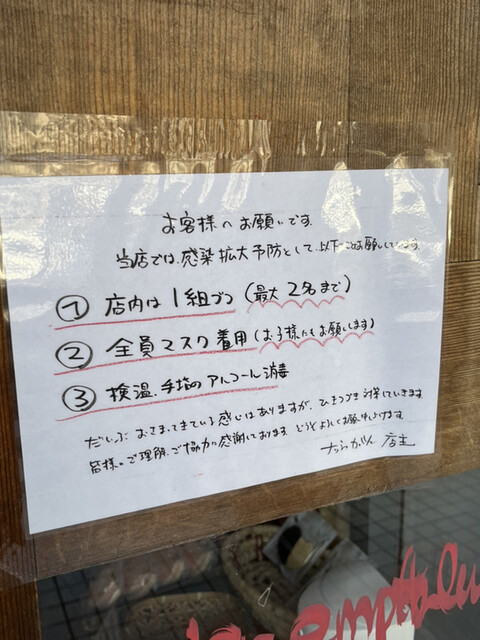 お客様へお願いです
当店では、感染拡大予防として、以下お願いしています。
① 店内は1組づつ (最大2名まで)
② 全員マスク着用 (お子様にもお願いします)
③ 検温、手指のアルコール消毒
だいぶおさまってきている感じはありますが、ひきつづき対策していきます
皆様のご理解、ご協力に感謝しております。どうぞよろしくお願い申し上げます。
店主